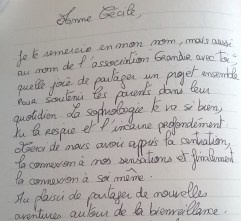 Anne Cécile,
Je te remercie en mon nom, mais aussi
au nom de l'association Grandir avec toi -
quelle joie de partager un projet ensemble
Pour soutenir les parents dans leur
quotidien. La sophrologie te va si bien,
tu la respire et l'incarne profondément.
Merci de nous avoir appris la centration,
la connexion à nos sensations et finalement
la connexion à soi même.
Au plaisir de partager de nouvelles
aventures autour de la bienveillance.